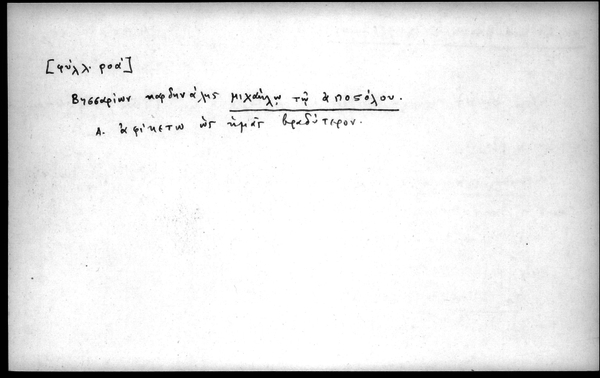 [φύλλ. ροα']
Βησσαρίων καρδηνάλις μιχαήλῳ τῷ ἀποστόλου.
Α. ἀφίκετο ὡς ἡμᾶς βραδύτερον.